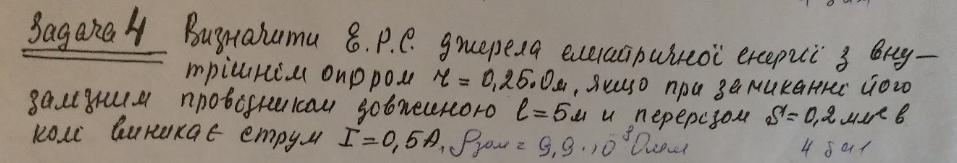 Задача 4 Визначити Е.Р.С. джерела електричної енергії з вну-
трішнім опором r = 0,25 Ом, якщо при замиканні його
залізним провідником довжиною l = 5м и перерізом S = 0,2 мм² в
колі виникає струм I = 0,5А, ρзал = 9,9·10⁻⁸ Ом·м 4 бал